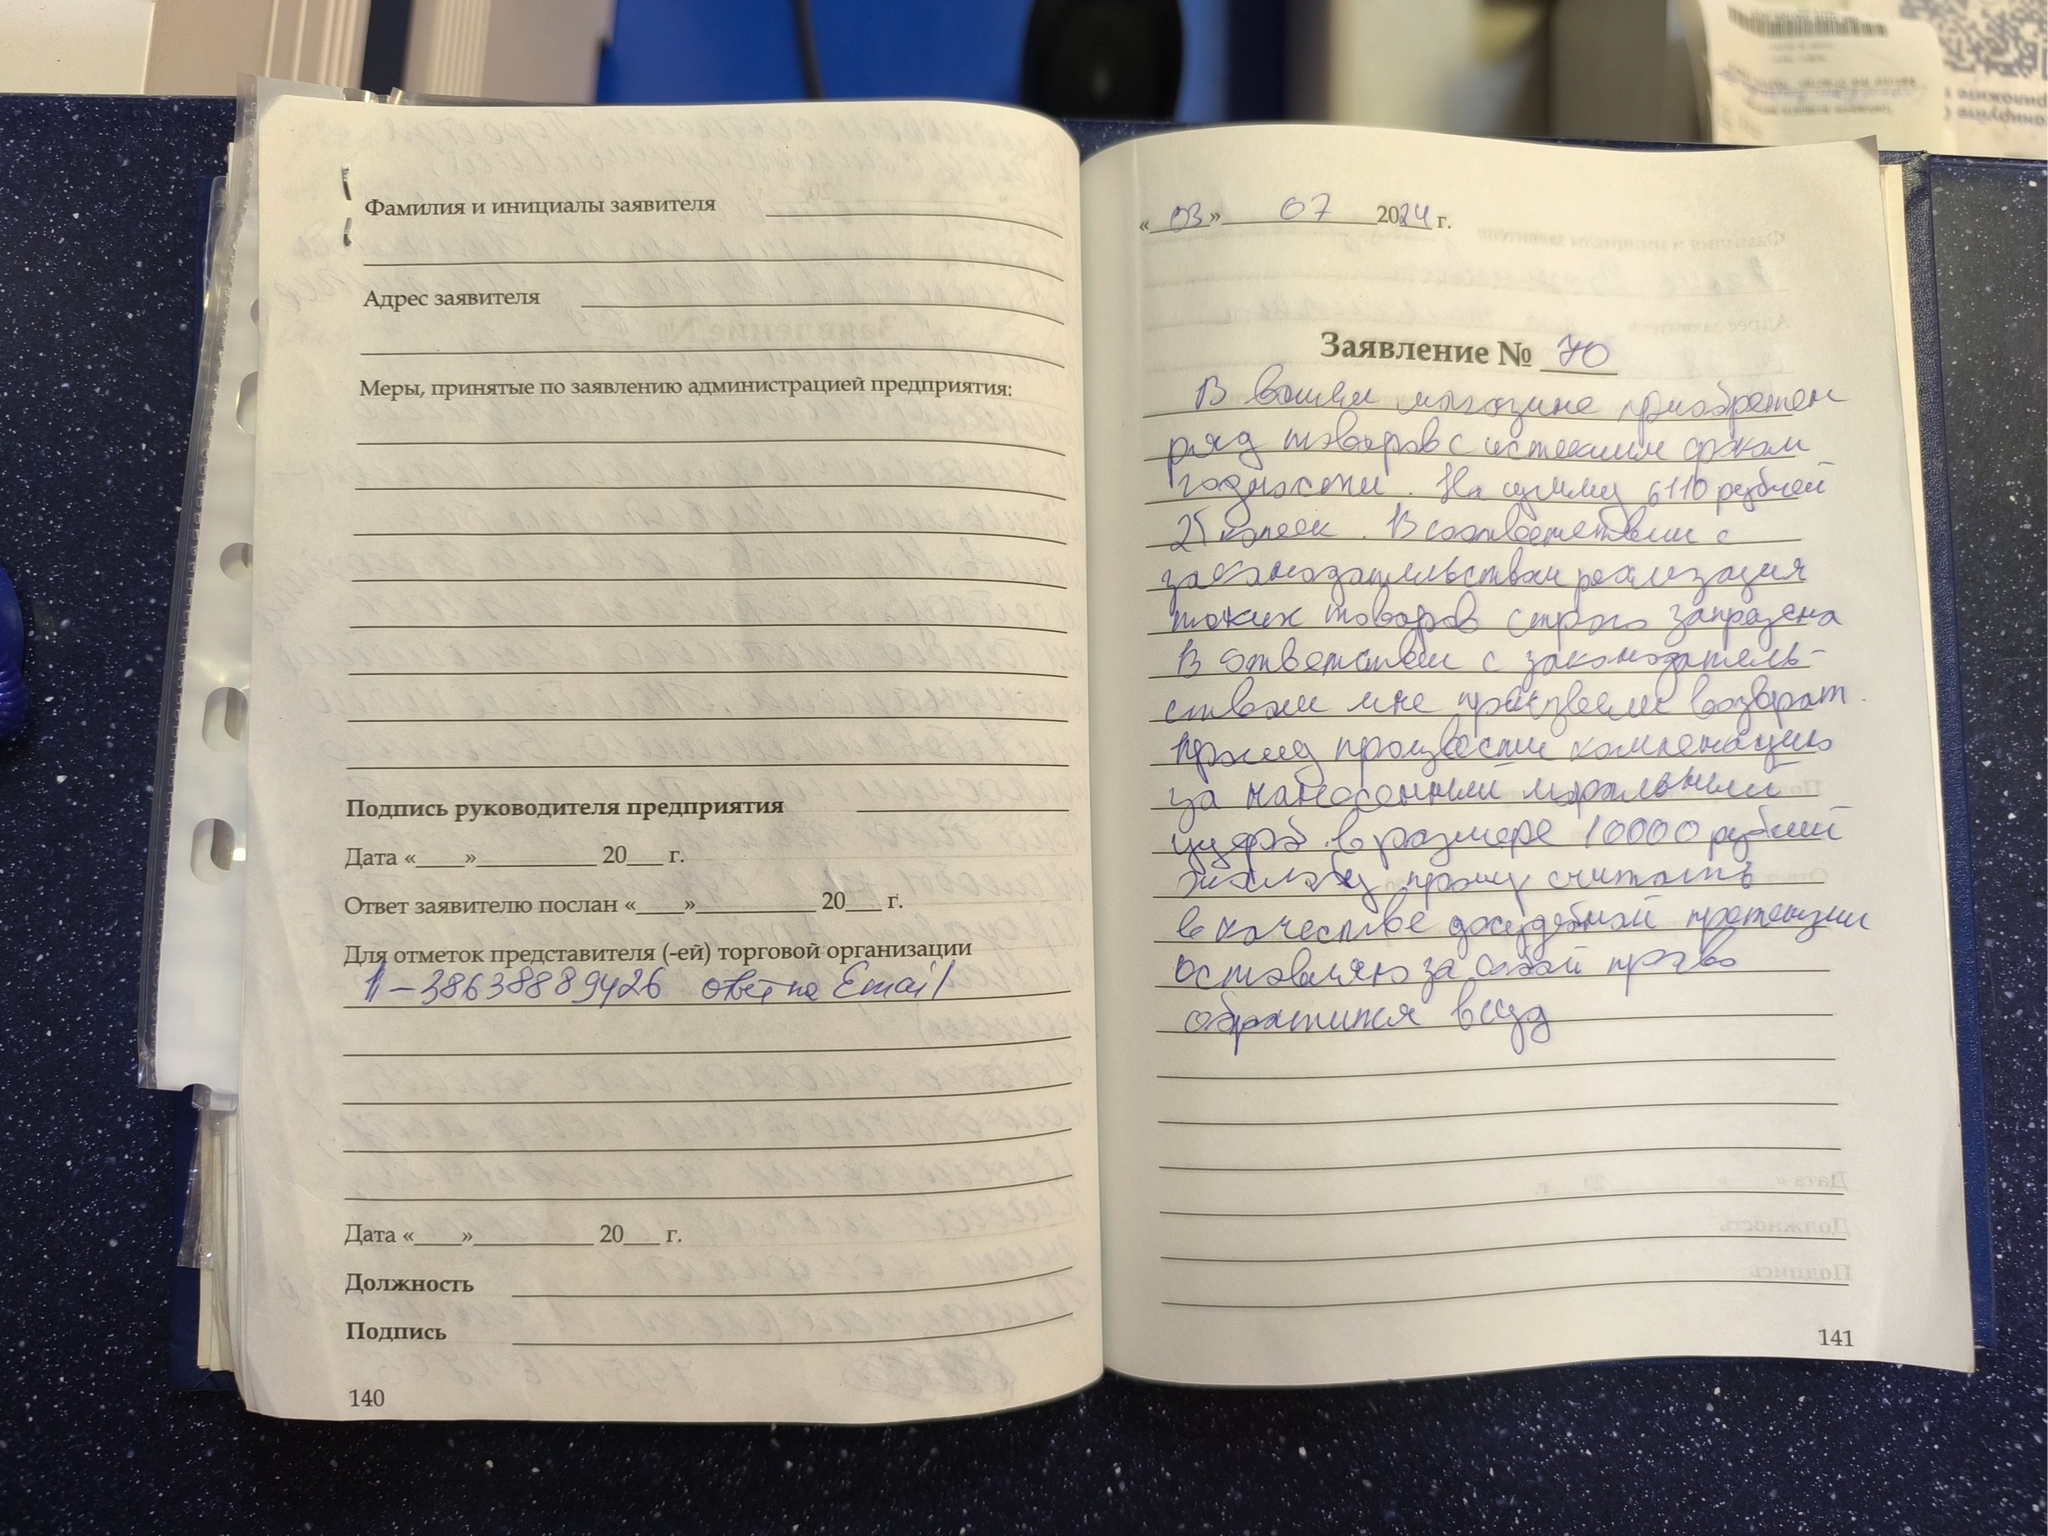 Фамилия и инициалы заявителя
Адрес заявителя
Меры, принятые по заявлению администрацией предприятия:
Подпись руководителя предприятия
Дата «____»__________ 20___ г.
Ответ заявителю послан «____»__________ 20___ г.
Для отметок представителя (-ей) торговой организации
1-38638889426 ответ на Email
Дата «____»__________ 20___ г.
Должность
Подпись
140
«03» 07 2024 г.
Заявление № 70
В вашем магазине приобретен
ряд товаров с истекшим сроком
годности. На сумму 6110 рублей
25 копеек. В соответствии с
законодательством реализация
таких товаров строго запрещена
В ответствии с законодатель-
ством мне произвели возврат.
Прошу произвести компенацию
за нанесенный моральный
ущерб в размере 10000 рублей
Жалобу прошу считать
в качестве досудебной претензии
оставляю за собой право
обратится в суд
141